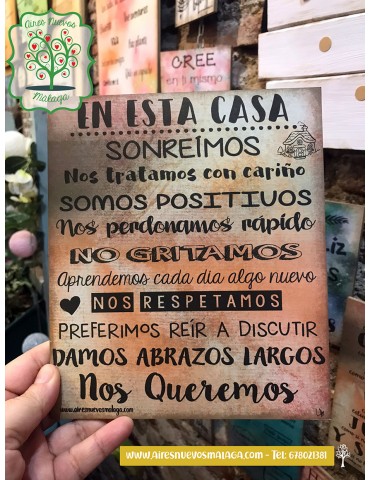 Aires Nuevos
Málaga
CREE
en ti mismo
EN ESTA CASA
SONREÍMOS
Nos tratamos con cariño
SOMOS POSITIVOS
Nos perdonamos rápido
NO GRITAMOS
Aprendemos cada día algo nuevo
NOS RESPETAMOS
PREFERIMOS REÍR A DISCUTIR
DAMOS ABRAZOS LARGOS
Nos Queremos
www.airesnuevosmalaga.com
www.airesnuevosmalaga.com - Tel: 678021381